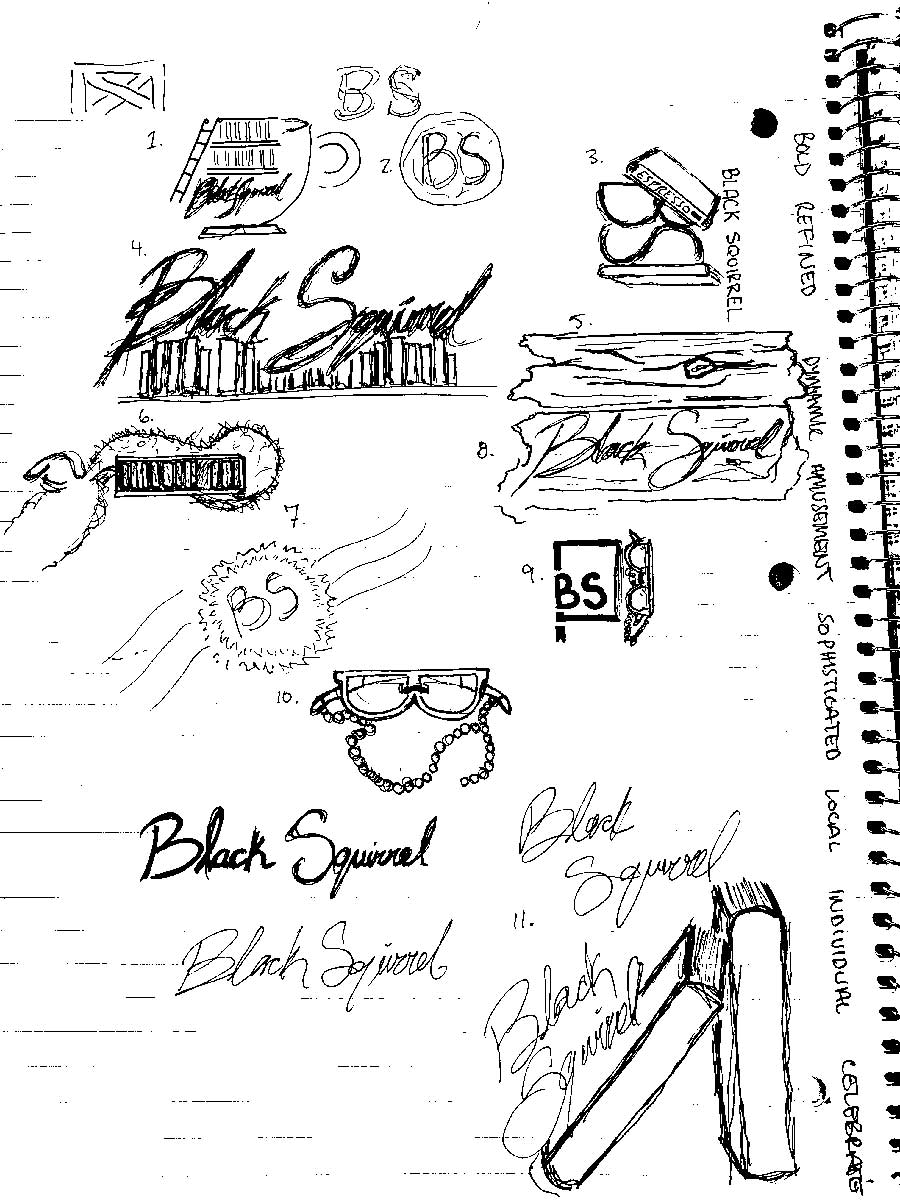 BS
1.
Black Squirrel
2.
BS
3.
ESPRESSO
BLACK SQUIRREL
4.
Black Squirrel
5.
6.
7.
BS
8.
Black Squirrel
9.
BS
10.
Black Squirrel
Black Squirrel
Black
Squirrel
11.
Black
Squirrel
BOLD REFINED DYNAMIC AMUSEMENT SOPHISTICATED LOCAL INDIVIDUAL CELEBRATE